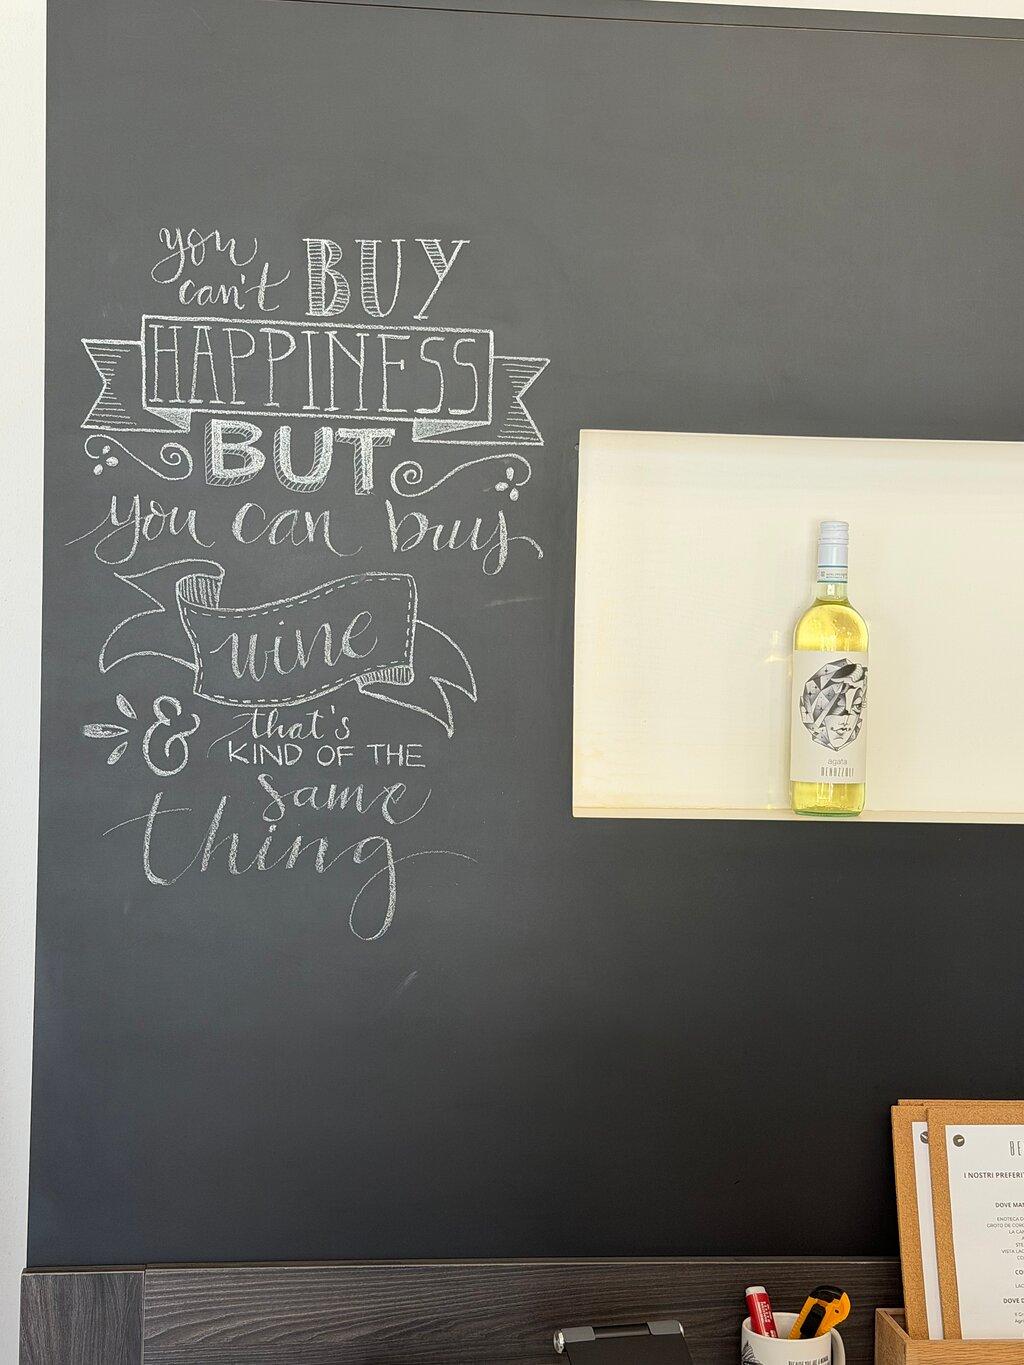 you
can't BUY
HAPPINESS
BUT
you can buy
wine
& that's
KIND OF THE
same
thing
agata
BENAZZOLI
BE
I NOSTRI PREFERIT
DOVE MA
ENOTECA D
GROTO DE COR
LA CA
VISTA LA
DOVE D